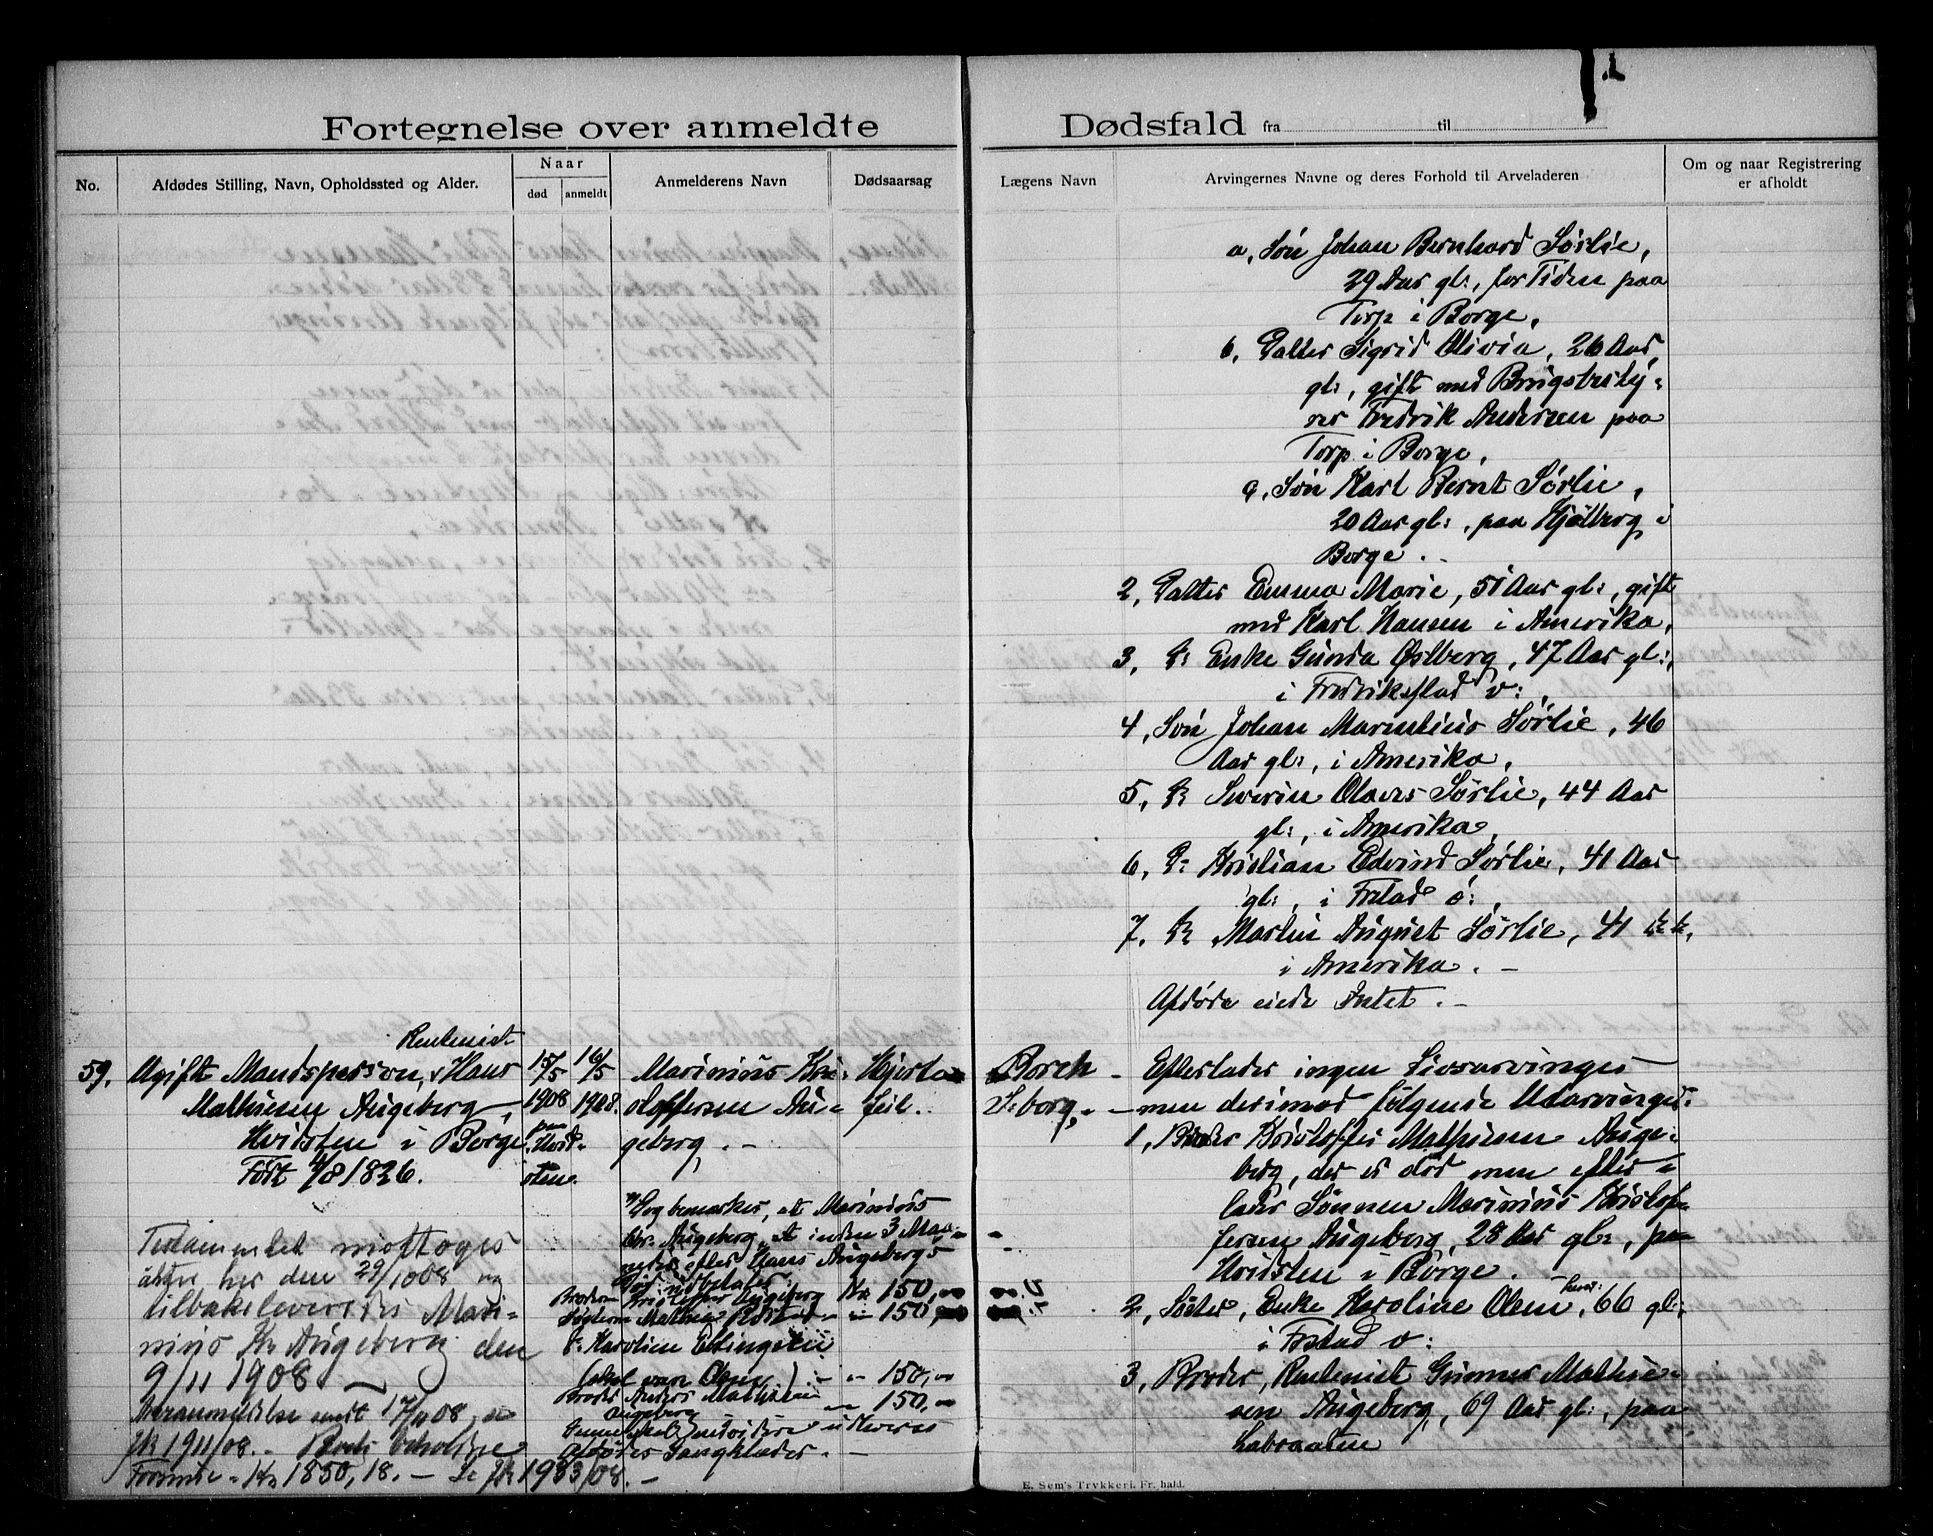 Fortegnelse over anmeldte
Dødsfald fra til
No.
Afdødes Stilling, Navn, Opholdssted og Alder.
Naar
død
anmeldt
Anmelderens Navn
Dødsaarsag
Lægens Navn
Arvingernes Navne og deres Forhold til Arveladeren
Om og naar Registrering
er afholdt
a, Søn Johan Bernhard Sørlie,
29 Aar gl:, for Tiden paa
Torp i Borge,
b, Datter Sigrid Olivia, 26 Aar
gl:, gift med Brugsbesty-
rer Fredrik Andersen paa
Torp i Borge,
c, Søn Karl Bernt Sørlie,
20 Aar gl:, paa Kjølberg i
Borge.
2, Datter Emma Marie, 51 Aar gl:, gift
med Karl Hansen i Amerika,
3, D: Enke Gunda Østberg, 47 Aar gl:,
i Fredrikstad v:,
4, Søn Johan Marentius Sørlie, 46
Aar gl:, i Amerika,
5, D: Severin Olaves Sørlie, 44 Aar
gl:, i Amerika,
6, D: Kristian Edvind Sørlie, 41 Aar
gl:, i Frstad ø:,
7, D: Martin August Sørlie, 41
i Amerika. -
Afdøde eiede Intet. -
59.
Rentenist
Ugift Mandsperson, Hans
Mathiesen Augeberg,
Hvidsten i Borge
Født 4/8 1826.
15/5
1908
paa
Hvid-
sten.
16/5
1908.
Marinius Kri-
stoffersen Au-
geberg. -
Hjerte-
feil.
Borch
S:borg. -
Efterlader ingen Livsarvinger
men derimod følgende Udarvinger:
1, Broder Kristoffer Mathiesen Auge-
berg, der er død men efter-
lader Sønnen Marinius Kristof-
fersen Augeberg, 28 Aar gl:, paa
Hvidsten i Borge.
2, Søster, Enke Karoline Olsen, 66 gl:,
i Frstad v:
3, Broder, Rentenist Gunner Mathie-
sen Augeberg, 69 Aar gl:, paa
Labraaten
Testamentet modtoges
her den 29/10 08
tilbakeleveredes Mari-
nius Kr. Augeberg den
9/11 1908. -
Arveanmeldelse sendt 17/11 08,
Jk 1911/08. - Boets beholdne
Formue = Kr 1850,18. - Se Jk 1933/08. -
bemærkes, at Marinius
Chr. Augeberg, inden 3 Maa-
neder efter Hans Augebergs
Død udbetaler:
Broderen Kristoffer Augeberg Kr 150,00
Søsteren Mathea - " 150,00
D: Karoline Ellingsen
(skal være Olsen) - " 150,00
Broder Anders Mathiesen
Augeberg - " 150,00
Gunner skal udleveres
afdødes Gangklæder. -
E. Sem's Trykkeri, Fr. hald.